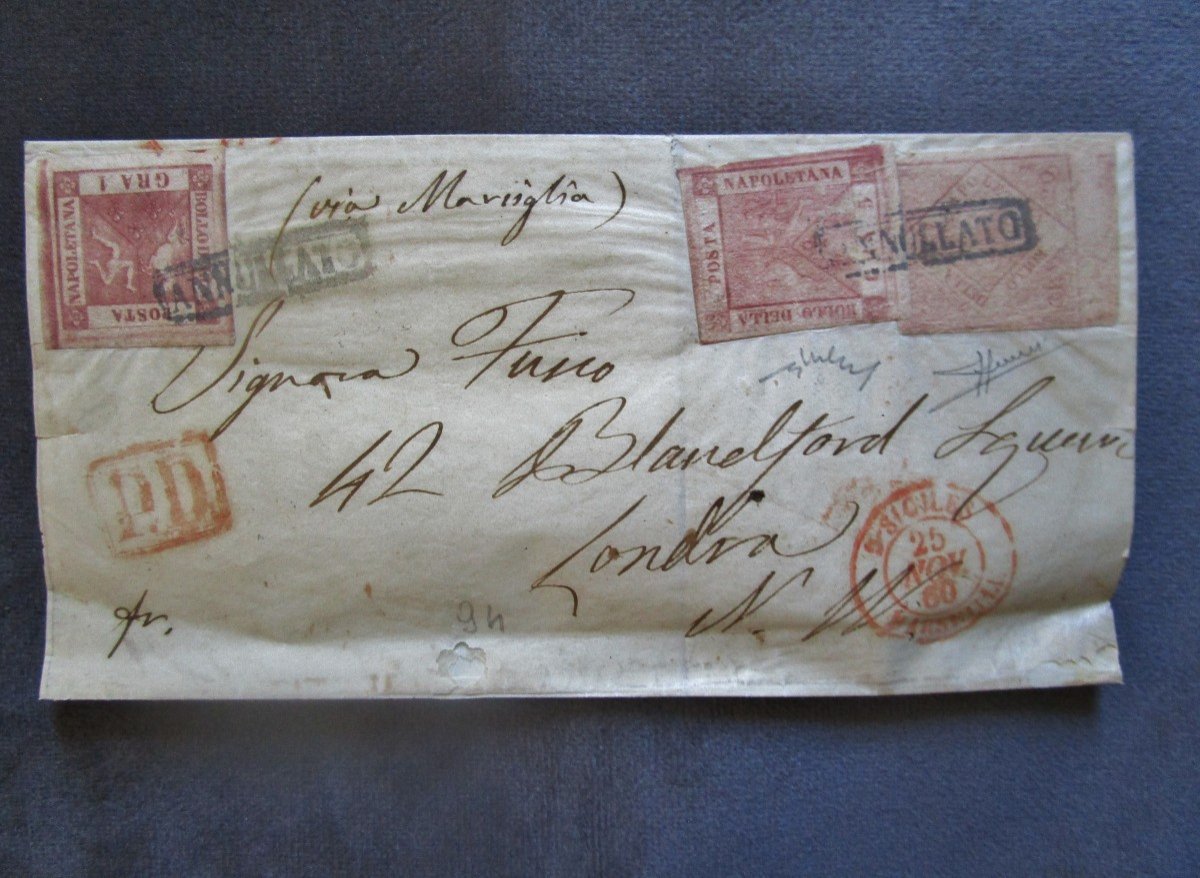 GRA 1
BOLLO
NAPOLETANA
POSTA
ANNULLATO
(via Marsiglia)
NAPOLETANA
POSTA
BOLLO DELLA
G 5
ANNULLATO
Signora Fusco
42 Blandford Square
Londra
N. W.
P.D.
fr.
94
2 SICILES
25
NOV.
60
MARSEILLE